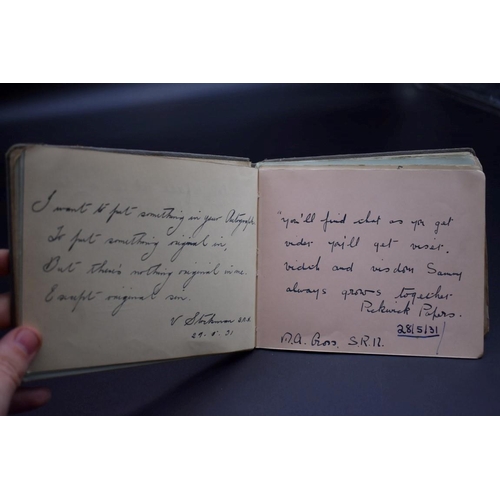 I want to put something in your Autograph
To put something original in,
But there's nothing original in me.
Except original sin.
V Storkman S.R.N.
29.5.31
"You'll find that as you get
vider you'll get viser.
vidth and visdom Sammy
always grows together
Pickwick Papers.
28/5/31
M.A. Cross. S.R.N.